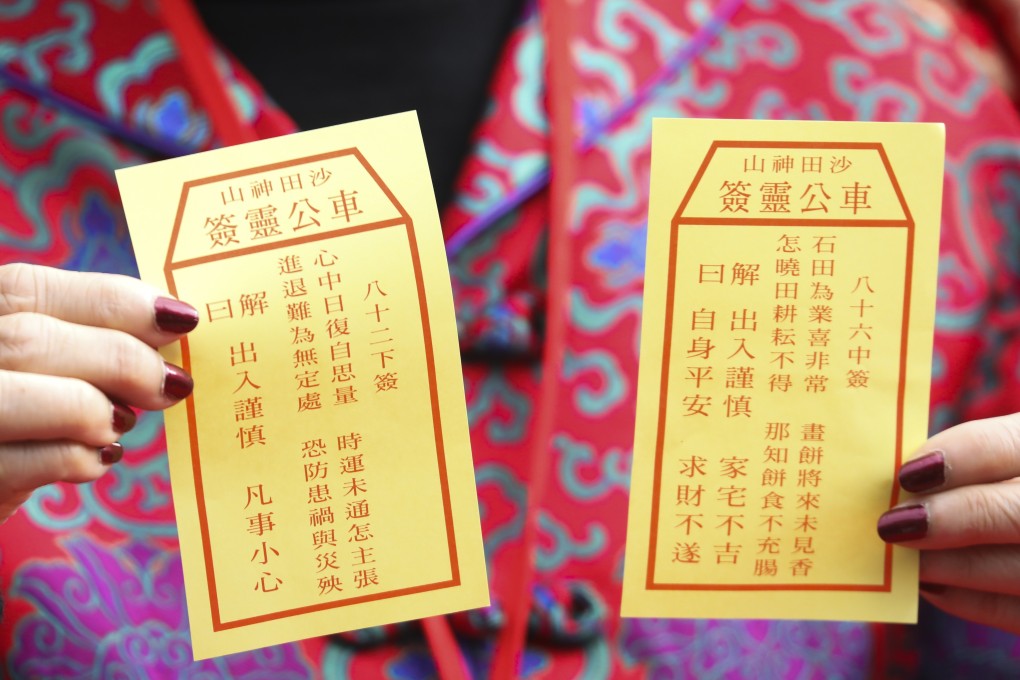 沙田神山
車公靈簽
八十二下簽
心中日復自思量 時運未通怎主張
進退難為無定處 恐防患禍與災殃
解曰 出入謹慎 凡事小心
沙田神山
車公靈簽
八十六中簽
石田為業喜非常 畫餅將來未見香
怎曉田耕耘不得 那知餅食不充腸
解 出入謹慎 家宅不吉
曰 自身平安 求財不遂